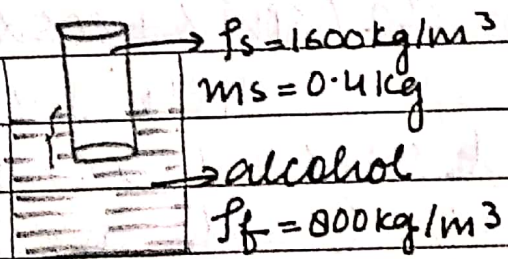 ρs = 1600 kg/m³
ms = 0.4 kg
alcohol
ρf = 800 kg/m³